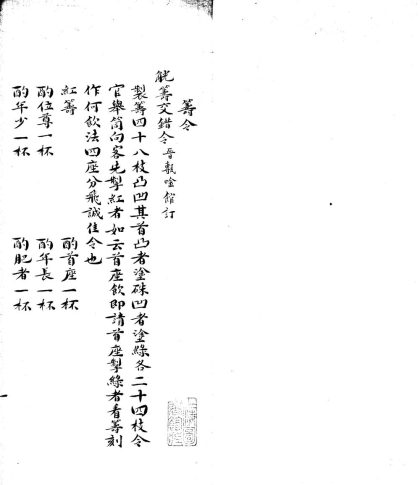 籌令
觥籌交錯令 晉觀唫館訂
製籌四十八枝凸凹其首凸者塗硃凹者塗綠各二十四枝令
官舉筒向客先掣紅者如云首座飲即請首座掣綠者看籌刻
作何飲法四座分飛誠佳令也
紅籌 酌首座一杯
酌位尊一杯 酌年長一杯
酌年少一杯 酌肥者一杯